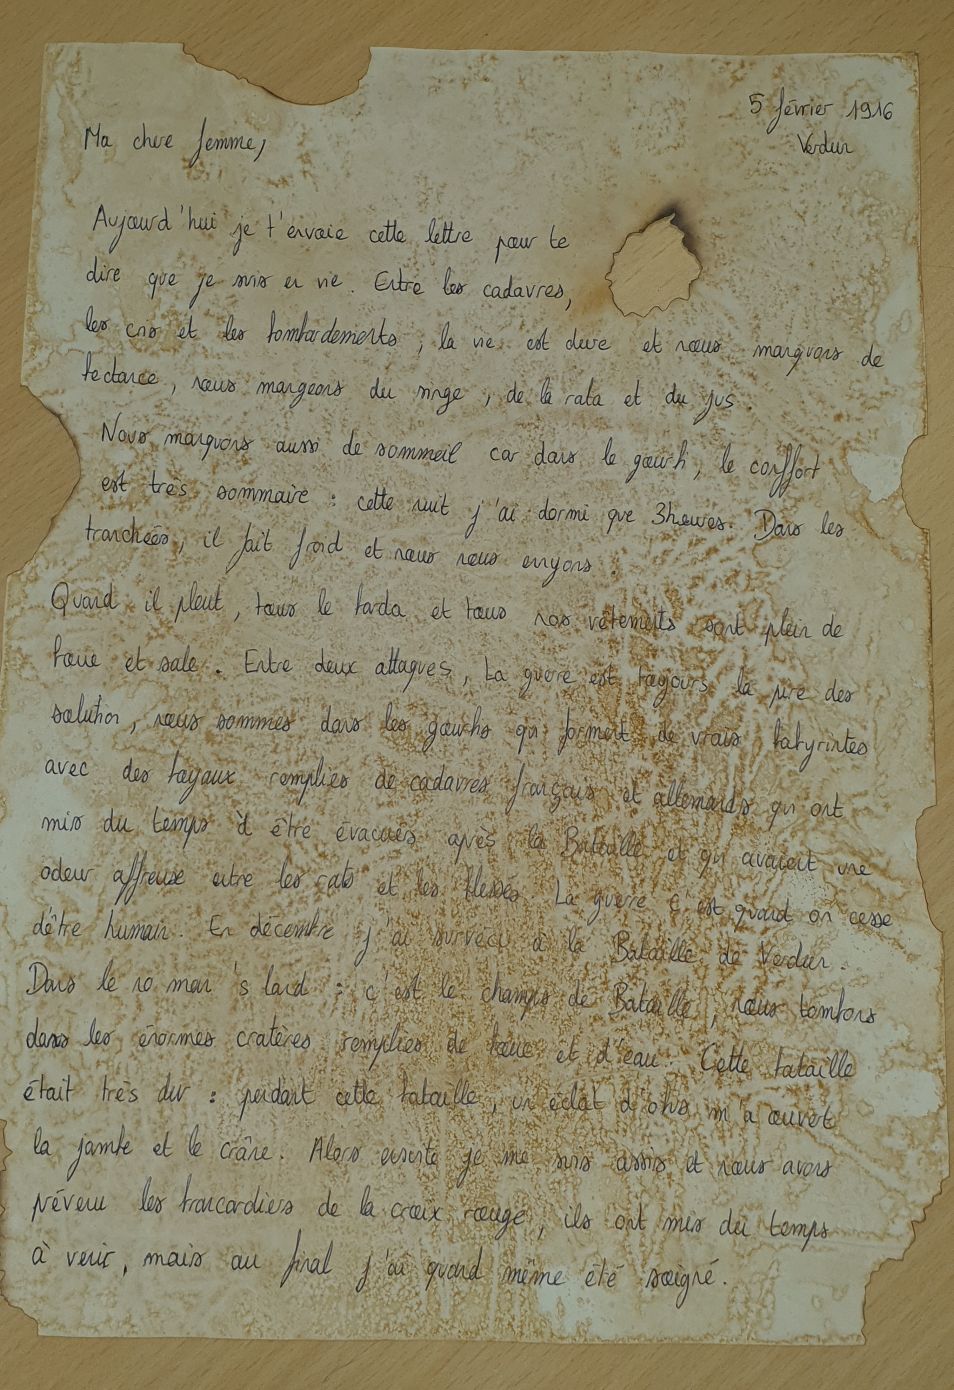 5 février 1916
Verdun
Ma chere femme,
Aujourd'hui je t'envoie cette lettre pour te
dire que je suis en vie. Entre les cadavres,
les cris et les bombardements, la vie est dure et nous manquons de
bectance, nous mangeons du singe, de la rata et du jus.
Nous manquons aussi de sommeil car dans le gourbi, le conffort
est très sommaire : cette nuit j'ai dormi que 3heures. Dans les
tranchées, il fait froid et nous nous ennyons.
Quand il pleut, tous le barda et tous nos vêtements sont plein de
boue et sale. Entre deux attaques, la guere est toujours la pire des
solution, nous sommes dans les gourbis qui forment de vrais labyrintes
avec des boyaux remplies de cadavres français et allemands qui ont
mis du temps d être évacués après la Bataille et qui avaient une
odeur affreuse entre les rats et les blessés. La guerre c'est quand on cesse
d'être humain. En décembre j'ai survécu à la Bataille de Verdun.
Dans le no man's land : c'est le champs de Bataille, nous tombons
dans les énormes cratères remplies de boue et d'eau. Cette bataille
était très dur : pendant cette bataille, un éclat d'obus m'a ouvert
la jambe et le crâne. Alors ensuite je me suis assis et nous avons
prévenu les brancardiers de la croix rouge, ils ont mis du temps
à venir, mais au final j'ai quand même été soigné.